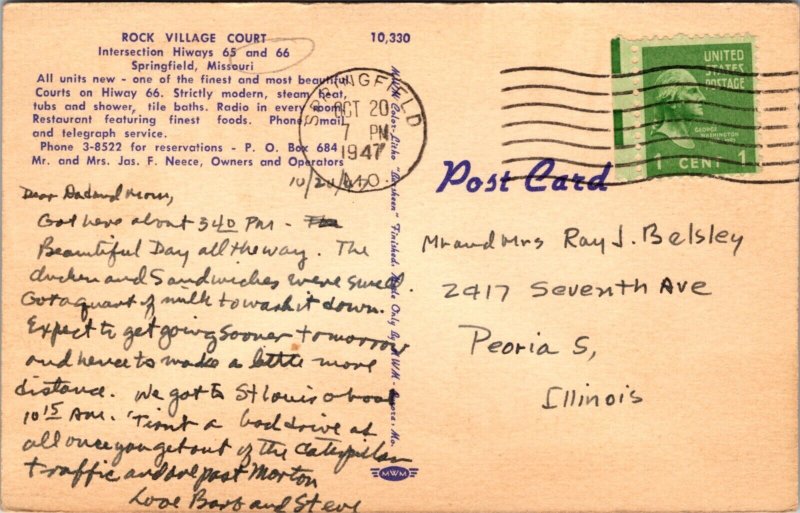 ROCK VILLAGE COURT
Intersection Hiways 65 and 66
Springfield, Missouri
All units new - one of the finest and most beautiful
Courts on Hiway 66. Strictly modern, steam heat,
tubs and shower, tile baths. Radio in every room.
Restaurant featuring finest foods. Phone, mail
and telegraph service.
Phone 3-8522 for reservations - P. O. Box 684
Mr. and Mrs. Jas. F. Neece, Owners and Operators
10,330
SPRINGFIELD
OCT 20
7 PM
1947
MO.
UNITED
STATES
POSTAGE
GEORGE
WASHINGTON
1 CENT 1
Post Card
10/20/47
Dear Dad and Mom,
Got here about 340 PM -
Beautiful Day all the way. The
chicken and Sandwiches were swell.
Got a quart of milk to wash it down.
Expect to get going sooner tomorrow
and hence to make a little more
distance. We got to St Louis about
1015 AM. 'Tisnt a bad drive at
all once you get out of the Caterpillar
traffic and are past Morton
Love Barb and Steve
Mr and Mrs Ray J. Belsley
2417 Seventh Ave
Peoria 5,
Illinois
MWM Color-Litho Finished. Made Only By MWM - Aurora, Mo.
MWM